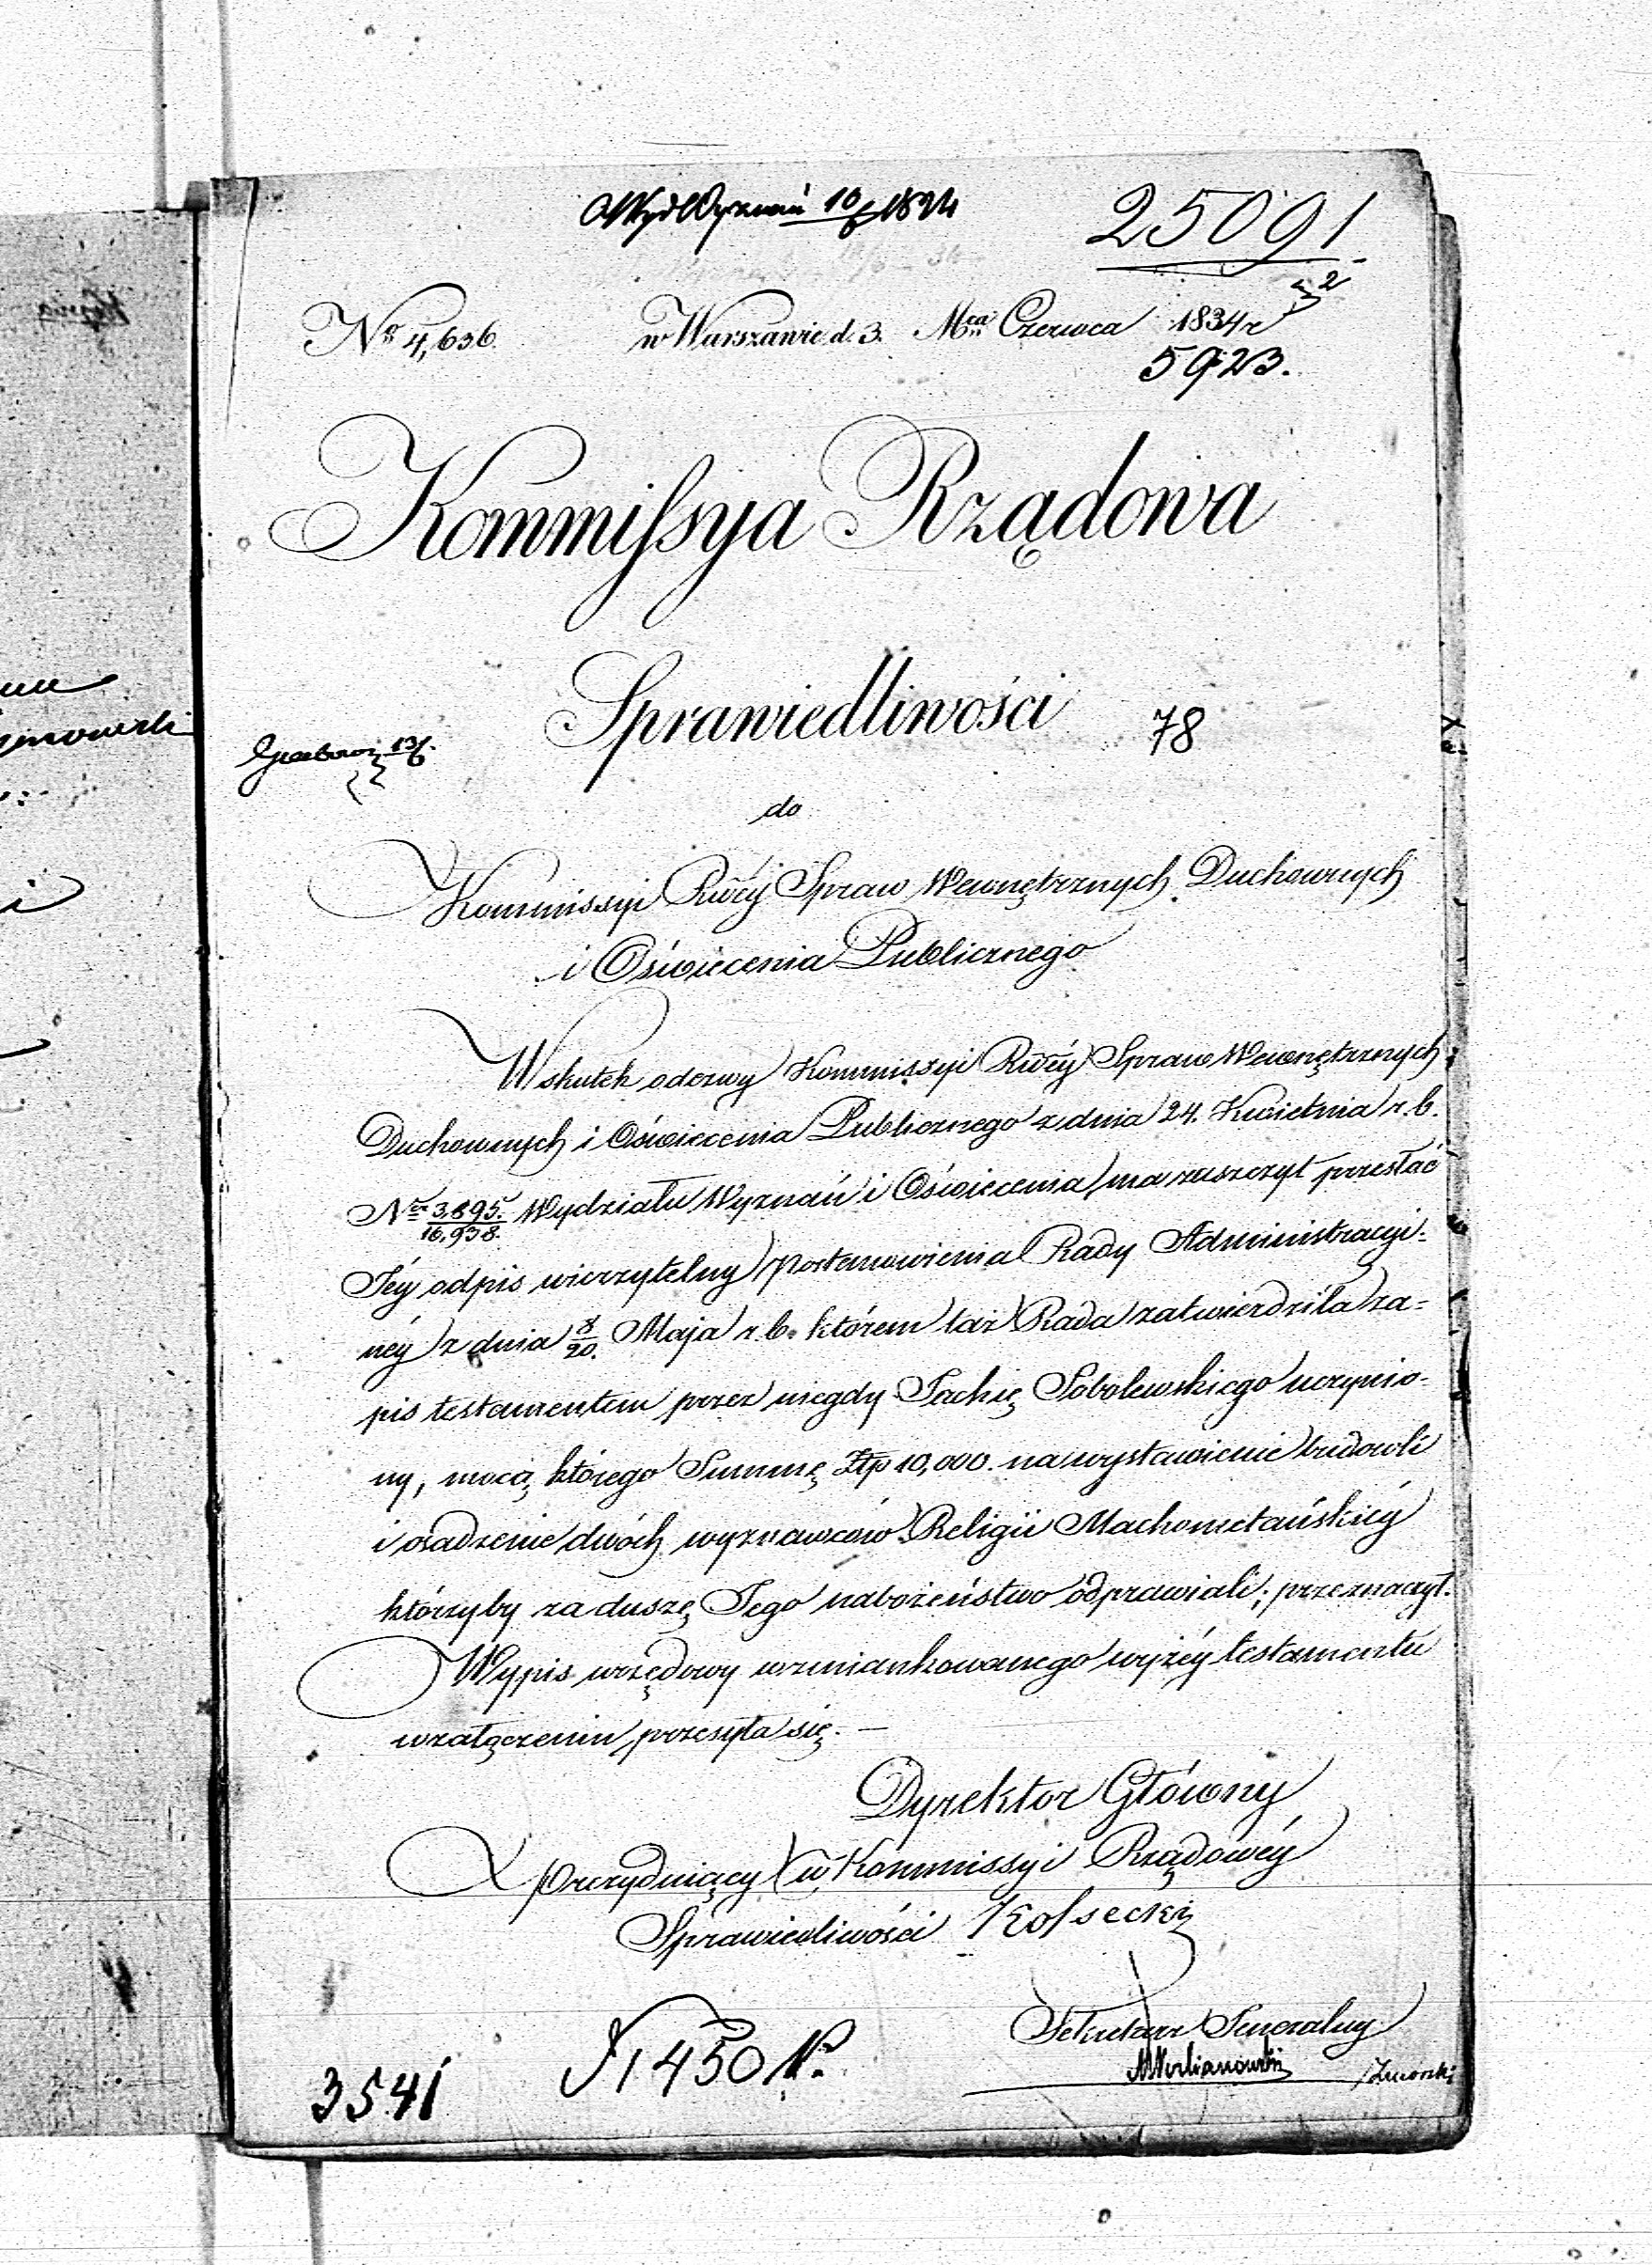 25091
No 4,636. w Warszawie d. 3. Mca Czerwca 1834 r
5923.
Kommissya Rządowa
Sprawiedliwości 78
do
Kommissyi Rwéy Spraw Wewnętrznych Duchownych
i Oświecenia Publicznego
W skutek odezwy Kommissyi Rwéy Spraw Wewnętrznych
Duchownych i Oświecenia Publicznego z dnia 24. Kwietnia r. b.
Ner 3.895./16,938. Wydziału Wyznań i Oświecenia, ma zaszczyt przesłać
Jéy odpis wierzytelny postanowienia Rady Administracyi-
néy z dnia 8/20. Maja r. b. którem taż Rada zatwierdziła za-
pis testamentem przez niegdy Jachię Sobolewskiego uczynio-
ny, mocą którego Summę Złp 10,000. na wystawienie budowli
i osadzenie dwóch wyznawców Religii Machometańskiéy
którzyby za duszę Jego nabożeństwo odprawiali; przeznaczył.
Wypis urzędowy wzmiankowanego wyżéy testamentu
w załączeniu, przesyła się. —
Dyrektor Główny
Prezyduiący w Kommissyi Rządowéy
Sprawiedliwości Kossecki
Sekretarz Generalny
3541